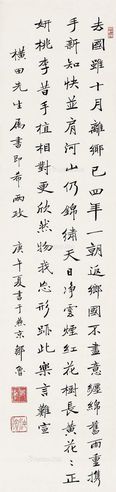 去國雖十月離鄉已四年一朝返鄉國不盡意纏綿舊雨重携
手新知快並肩河山仍錦繡天日凈雲煙紅花樹長黃花〻正
妍桃李昔手植相對更欣然物我忘形跡此樂言難宣
橫田先生屬書即希兩政 庚午夏書于燕京鄒魯